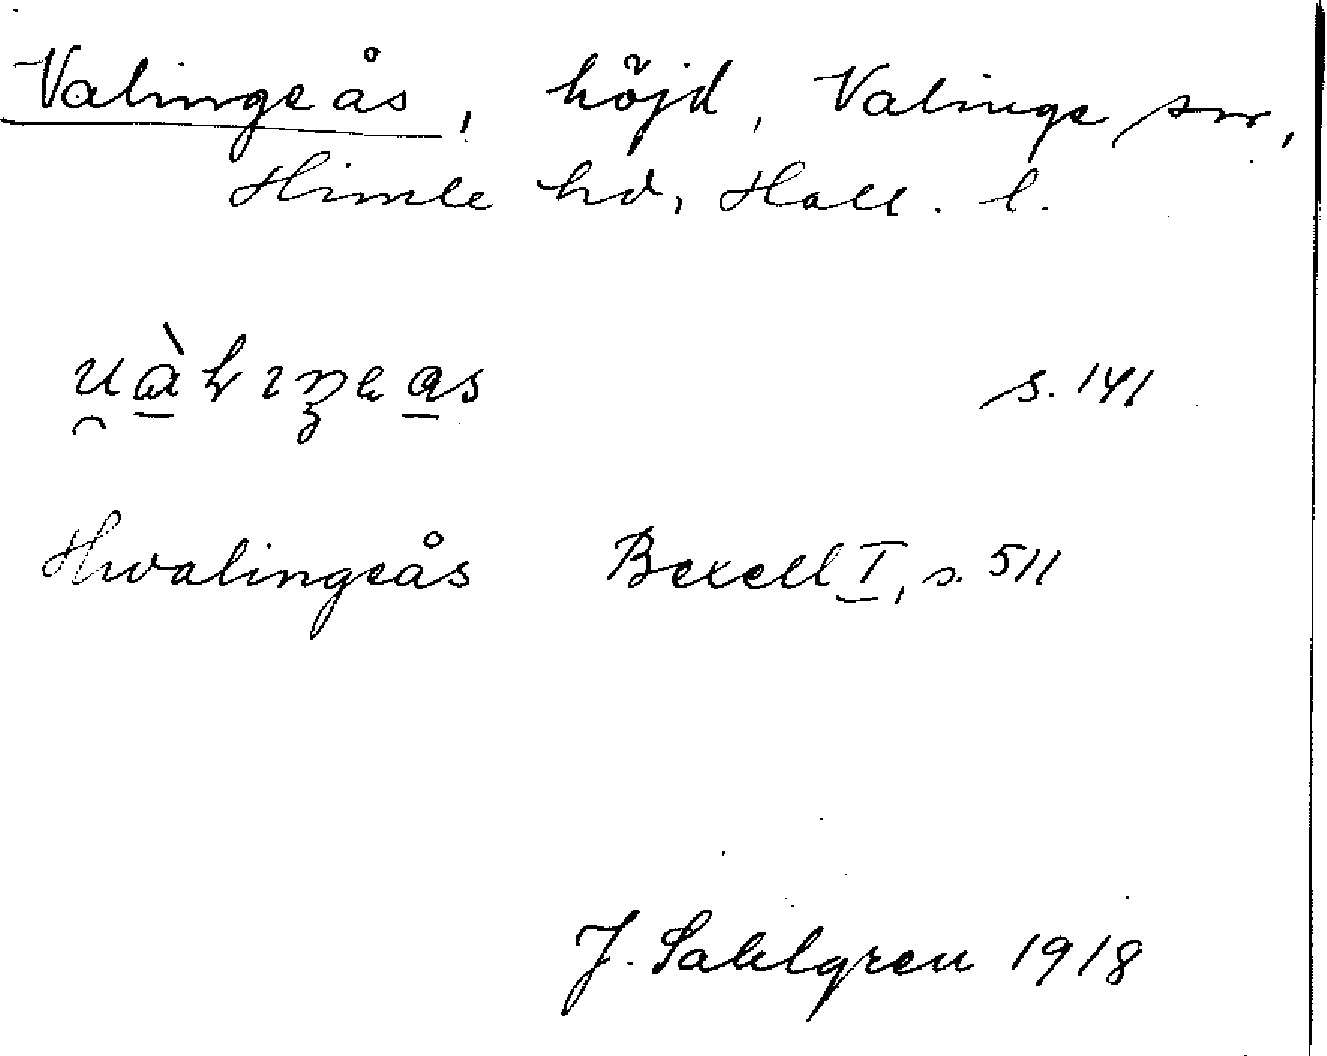 Valingeås, höjd, Valinge sn,
Himle hd, Hall. l.
s. 141
Hvalingeås Bexell I, s. 511
J. Sahlgren 1918